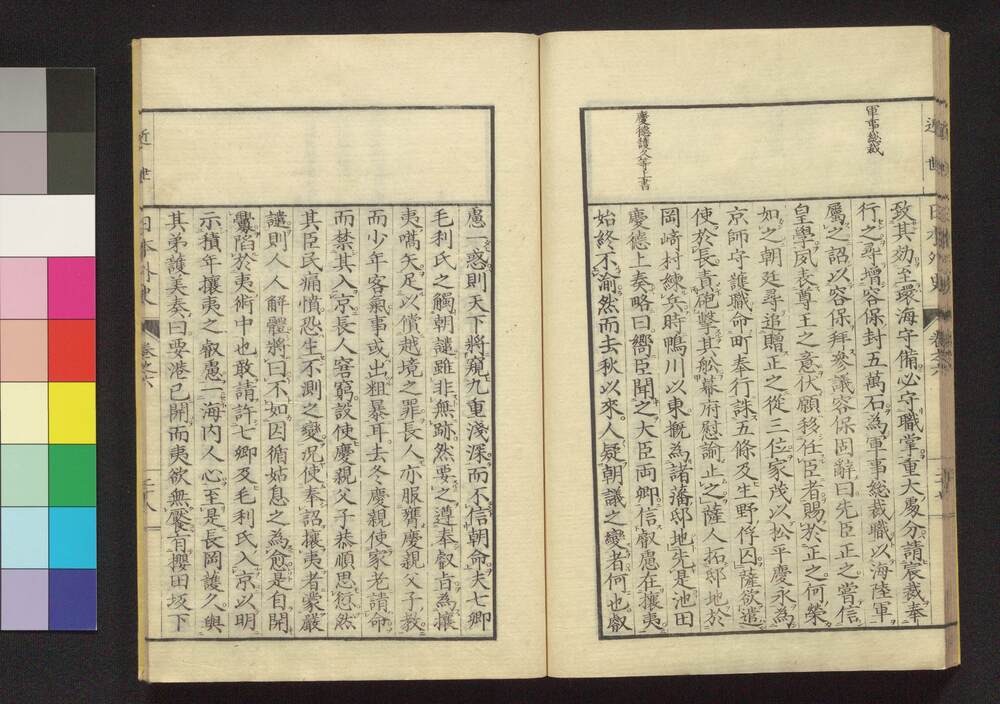 軍事総裁
慶徳護久等上書
致其効至環海守備必守職掌重大處分請宸裁奉
行之尋增容保封五萬石為軍事総裁職以海陸軍
屬之詔以容保拜參議容保固辭曰先臣正之嘗信
皇學夙表尊王之意伏願移任臣者賜於正之何榮
如之朝廷尋追贈正之從三位家茂以松平慶永為
京師守護職命町奉行誅五條及生野俘囚薩欲遣
使於長責砲擊其船幕府慰諭止之薩人拓邸地於
岡崎村練兵時鴨川以東概為諸藩邸地先是池田
慶德上奏略曰嚮臣聞之大臣両卿信叡慮在攘夷
始終不渝然而去秋以來人疑朝議之變者何也叡
慮一惑則天下將窺九重淺深而不信朝命夫七卿
毛利氏之觸朝譴雖非無跡然要之遵奉叡旨為攘
夷嚆矢足以償越境之罪長人亦服膺慶親父子教
而少年客氣事或出粗暴耳去冬慶親使家老請命
而禁其入京長人窘窮設使慶親父子恭順思愆然
其臣民痛憤恐生不測之變况使奉詔攘夷者蒙嚴
譴則人人解體將曰不如因循姑息之為愈是自開
釁陷於夷術中也敢請許七卿及毛利氏入京以明
示積年攘夷之叡慮一海内人心至是長岡護久與
其弟護美奏曰要港已開而夷欲無饜有櫻田坂下
近世日本外史
卷之六